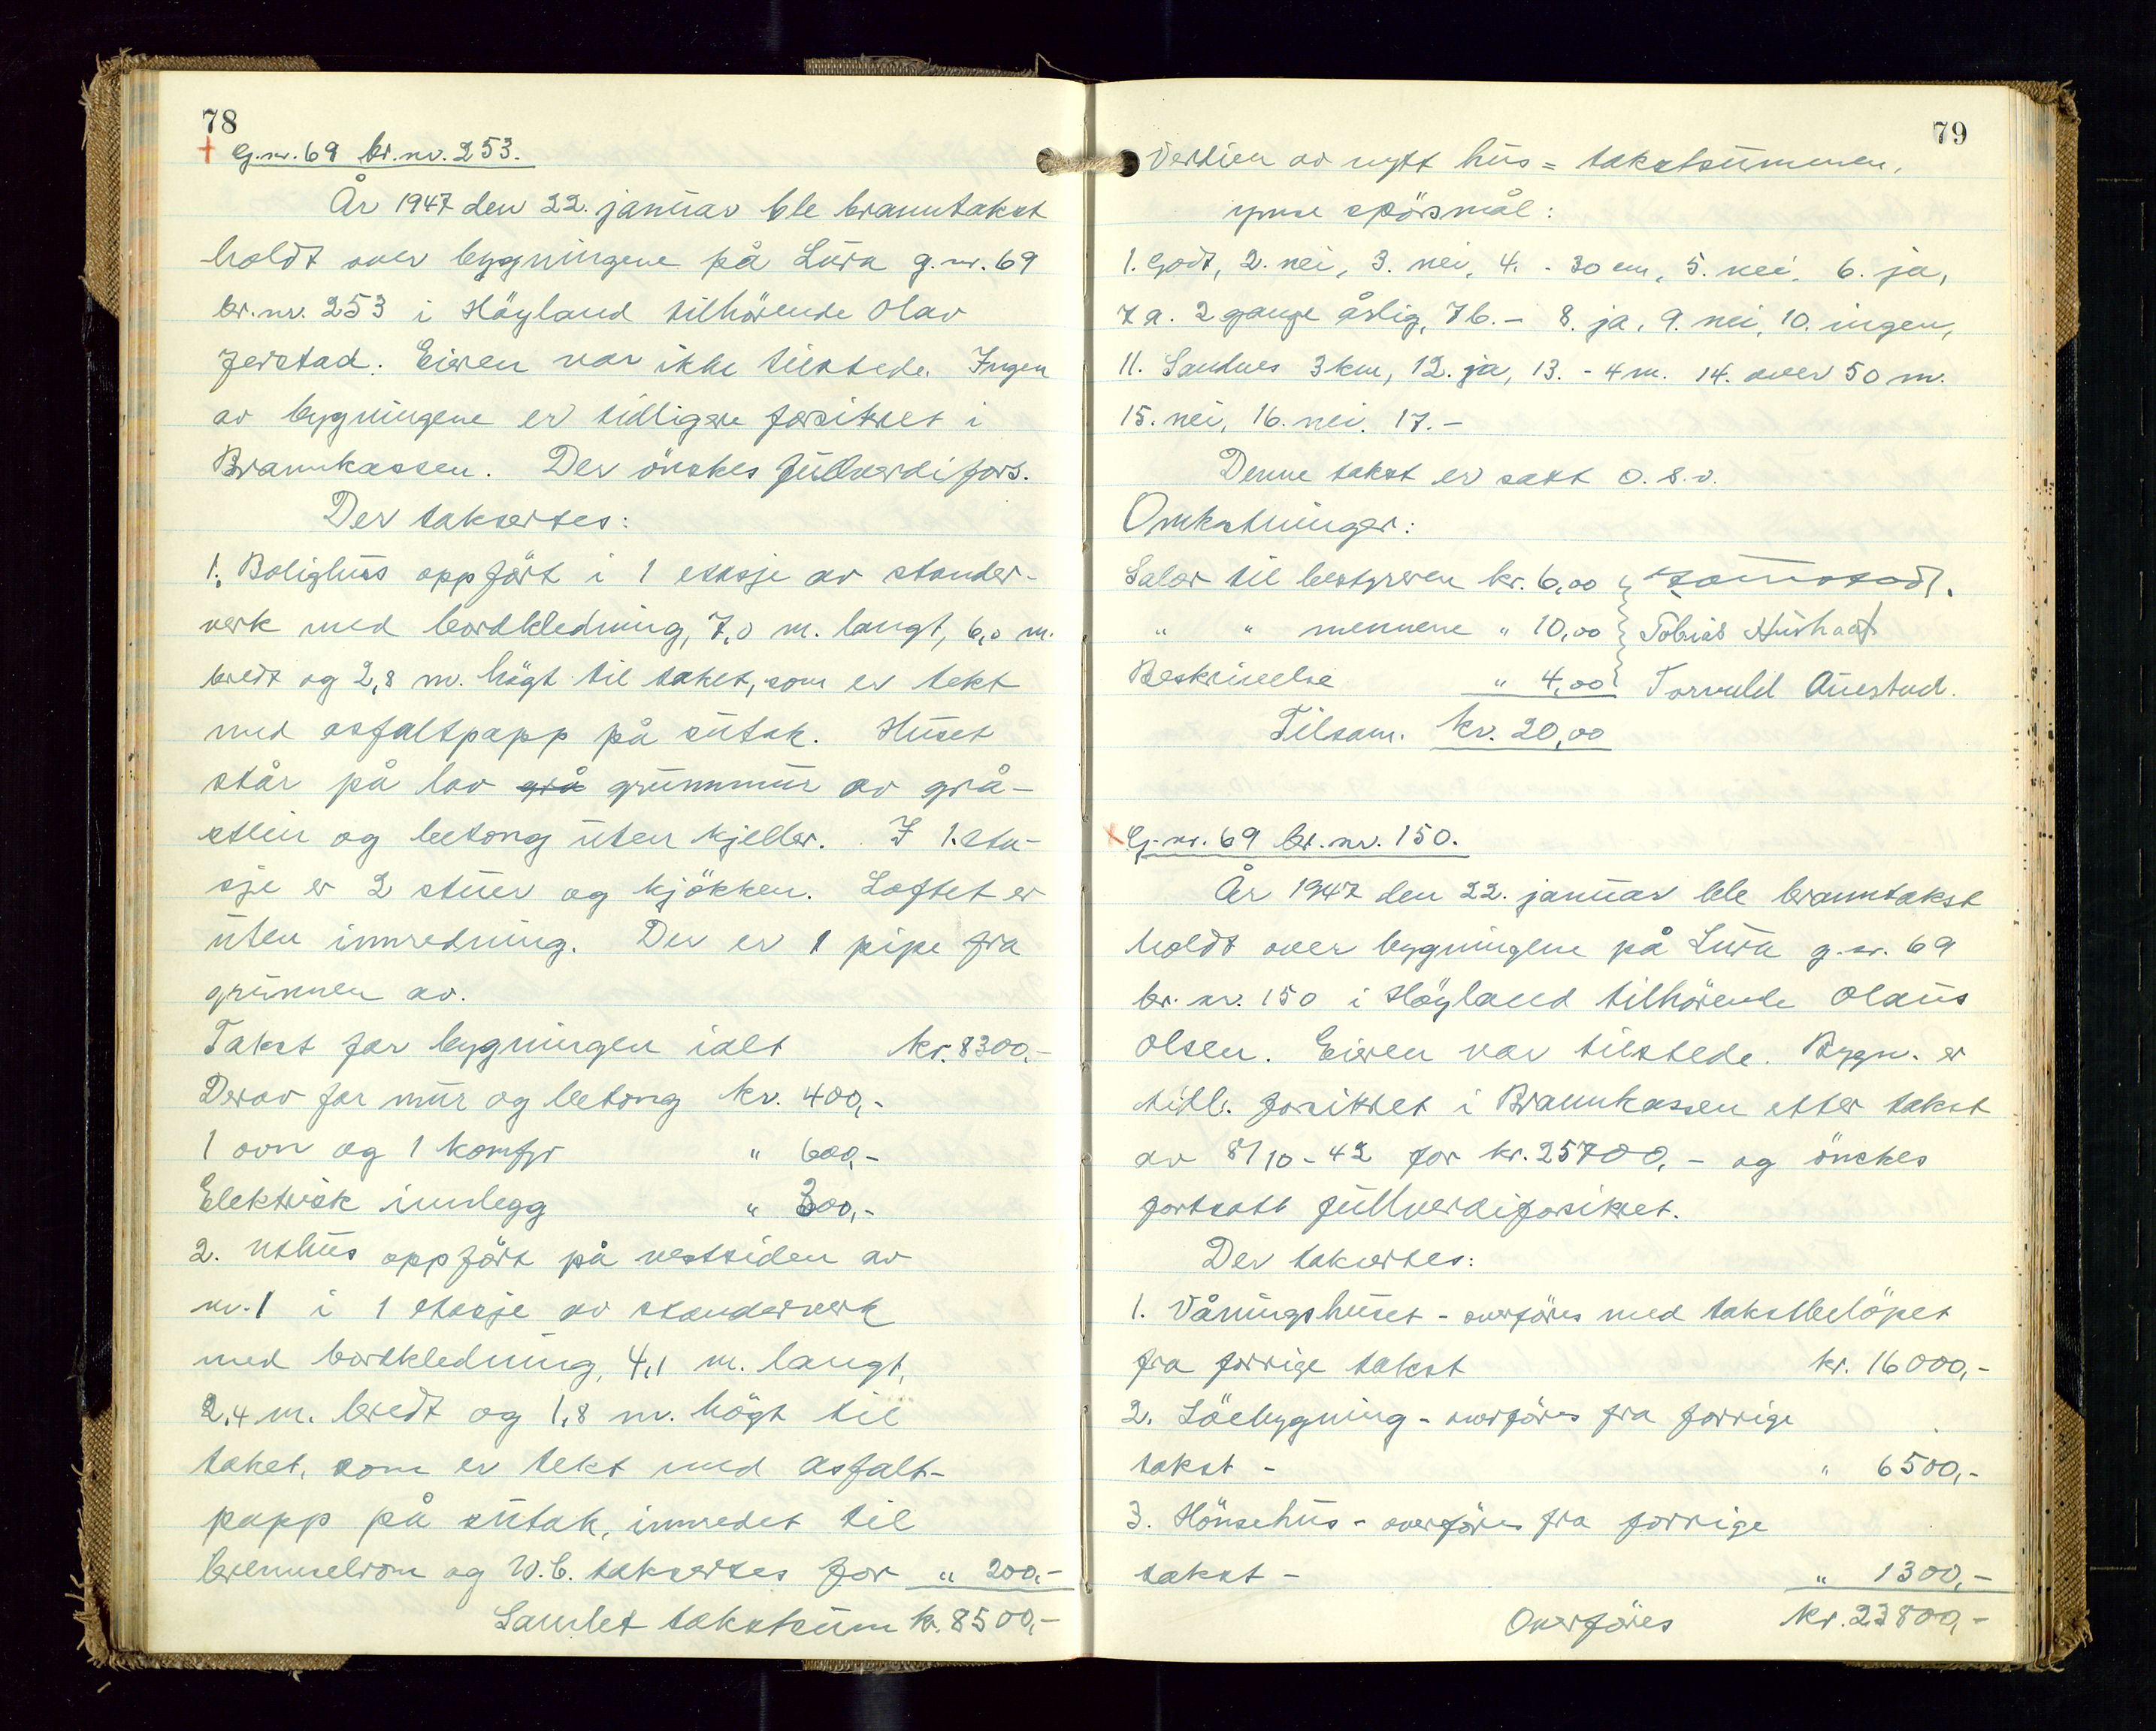 78
G.nr. 69 br.nr. 253.
År 1947 den 22. januar ble branntakst
holdt over bygningene på Lura g.nr. 69
br.nr. 253 i Höyland tilhörende Olav
Jerstad. Eieren var ikke tilstede. Ingen
av bygningene er tidligere forsikret i
Brannkassen. Der önskes fullverdifors.
Der taksertes:
1. Bolighus oppfört i 1 etasje av stender-
verk med bordkledning, 7,0 m. langt, 6,0 m.
bredt og 2,8 m. högt til taket, som er tekt
med asfaltpapp på sutak. Huset
står på lav grå grunnmur av grå-
stein og betong uten kjeller. I 1. eta-
sje er 2 stuer og kjökken. Loftet er
uten innredning. Der er 1 pipe fra
grunnen av.
Takst for bygningen ialt kr. 8300,-
Derav for mur og betong kr. 400,-
1 ovn og 1 komfyr " 600,-
Elektrisk innlegg " 300,-
2. Uthus oppfört på vestsiden av
nr. 1 i 1 etasje av stenderverk
med bordkledning, 4,1 m. langt,
2,4 m. bredt og 1,8 m. högt til
taket, som er tekt med asfalt-
papp på sutak, innredet til
brenselrom og W.C. taksertes for " 200,-
Samlet takstsum kr. 8500,-
79
Verdien av nytt hus = takstsummen.
ymse spörsmål:
1. Godt, 2. nei, 3. nei, 4. - 30 cm, 5. nei. 6. ja,
7a. 2 gange årlig, 7b. - 8. ja, 9. nei, 10. ingen,
11. Sandnes 3 km, 12. ja, 13. - 4 m. 14. over 50 m.
15. nei, 16. nei. 17. -
Denne takst er satt o.s.v.
Omkostninger:
Salær til bestyreren kr. 6,00
" " mennene " 10,00 Tobias
Beskrivelse " 4,00 Torvald Auestad.
Tilsam. kr. 20,00
G.nr. 69 br.nr. 150.
År 1947 den 22. januar ble branntakst
holdt over bygningene på Lura g.nr. 69
br.nr. 150 i Höyland tilhörende Olaus
Olsen. Eieren var tilstede. Bygn. er
tidl. forsikret i Brannkassen etter takst
av 8/10-42 for kr. 25700,- og önskes
fortsatt fullverdiforsikret.
Der taksertes:
1. Våningshuset - overföres med takstbelöpet
fra forrige takst kr. 16000,-
2. Löebygning - overföres fra forrige
takst - " 6500,-
3. Hönsehus - overföres fra forrige
takst - " 1300,-
Overföres kr. 23800,-